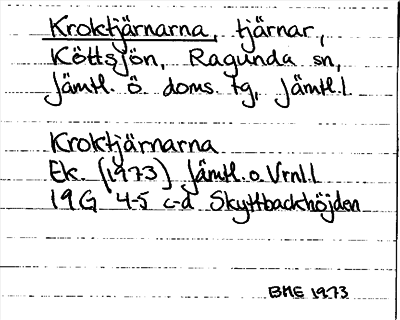 Kroktjärnarna, tjärnar,
Köttsjön, Ragunda sn,
Jämtl. ö. doms. tg, Jämtl.l
Kroktjärnarna
Ek. (1973) Jämtl. o. Vrnl.l
19G 4-5 c-d Skyttbackhöjden
BME 1973